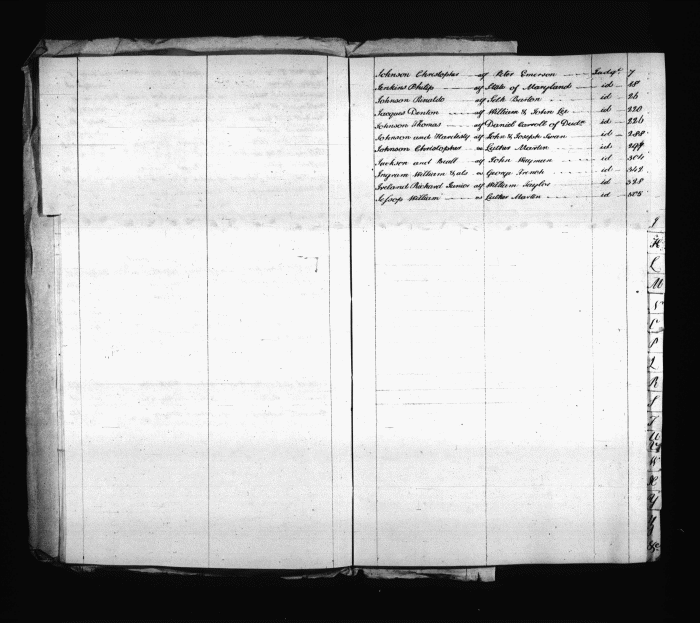 Johnson Christopher agt Peter Emerson Judgt 7
Jenkins Philip agt State of Maryland id 18
Johnson Rinaldo agt Seth Barton id 26
Jacques Denton agt William & John Lee id 220
Johnson Thomas agt Daniel Carroll of Dudn id 226
Johnson and Hardesty agt John & Joseph Swan id 288
Johnson Christopher vs Luther Martin id
Jackson and Beall agt John Wayman id 304
Ingram William & als vs George French id 342
Ireland Richard Junior agt William Taylor id 328
Jessop William vs Luther Martin id 505